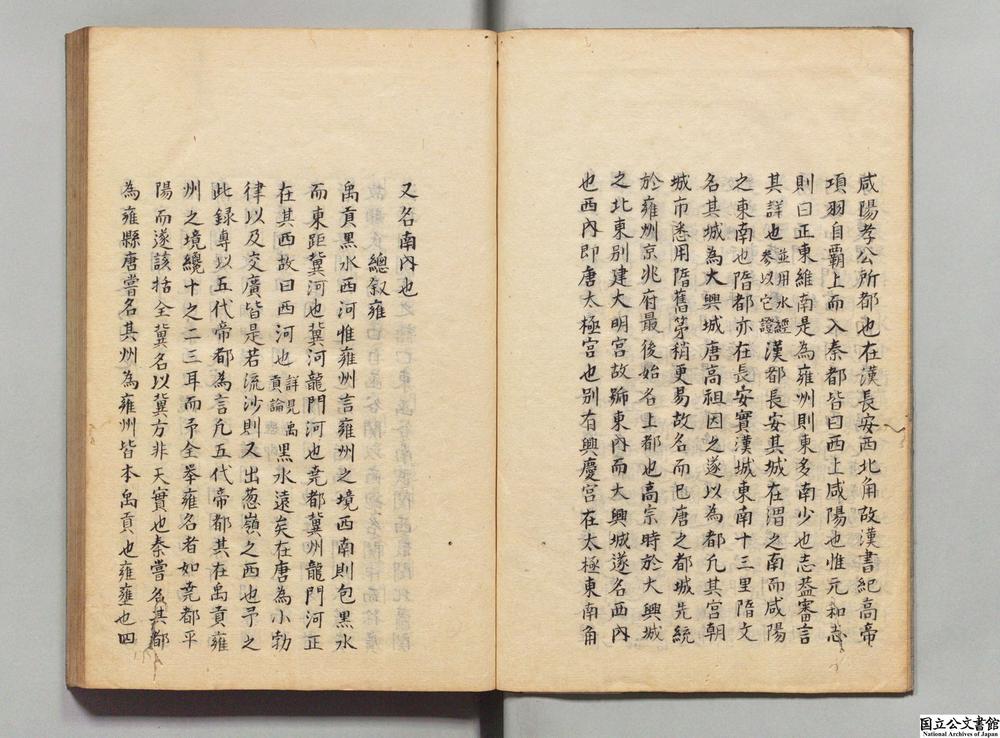 咸陽孝公所都也在漢長安西北角故漢書紀高帝
項羽自霸上而入秦都皆曰西上咸陽也惟元和志
則曰正東維南是為雍州則東多南少也志益審言
其詳也並用水經參以它證漢都長安其城在渭之南而咸陽
之東南也隋都亦在長安實漢城東南十三里隋文
名其城為大興城唐高祖因之遂以為都凡其宮朝
城市悉用隋舊第稍更易故名而已唐之都城先統
於雍州京兆府最後始名上都也高宗時於大興城
之北東別建大明宮故號東內而大興城遂名西內
也西內即唐太極宮也別有興慶宮在太極東南角
又名南內也
總叙雍
禹貢黑水西河惟雍州言雍州之境西南則包黑水
而東距冀河也冀河龍門河也堯都冀州龍門河正
在其西故曰西河也詳見禹貢論黑水遠矣在唐為小勃
律以及交廣皆是若流沙則又出葱嶺之西也予之
此録專以五代帝都為言凡五代帝都其在禹貢雍
州之境纔十之二三耳而予全舉雍名者如堯都平
陽而遂該括全冀名以冀方非天實也秦嘗名其都
為雍縣唐嘗名其州為雍州皆本禹貢也雍壅也四
国立公文書館
National Archives of Japan